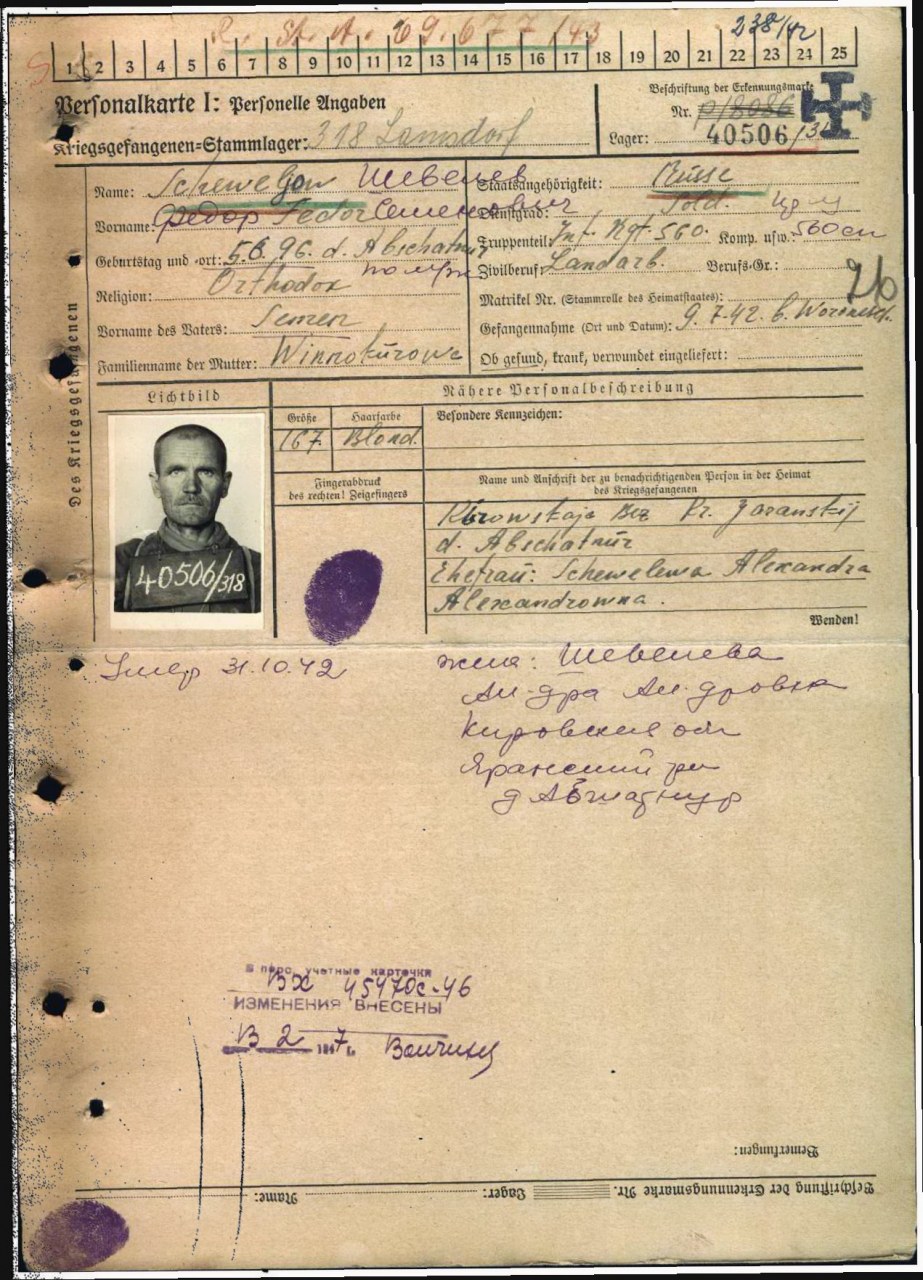 R. St. A. 69.677/43
238/42
1 2 3 4 5 6 7 8 9 10 11 12 13 14 15 16 17 18 19 20 21 22 23 24 25
Personalkarte I: Personelle Angaben
Beschriftung der Erkennungsmarke
Nr.
Kriegsgefangenen=Stammlager: 318 Lamsdorf
Lager: 40506/3
Des Kriegsgefangenen
Name: Scheweljow Шевелев
Staatsangehörigkeit: Russe
Vorname: Федор Fedor Семенович
Dienstgrad: Sold.
Geburtstag und =ort: 5.6.96. d. Abschatnur
Truppenteil: Inf. Rgt. 560. Komp. usw.: 560 сп
Religion: Orthodox
Zivilberuf: Landarb. Berufs=Gr.:
Matrikel Nr. (Stammrolle des Heimatstaates):
Vorname des Vaters: Semen
Gefangennahme (Ort und Datum): 9.7.42. b. Woronesch.
Familienname der Mutter: Winnokurowa
Ob gesund, krank, verwundet eingeliefert:
26
Lichtbild
Nähere Personalbeschreibung
Größe
Haarfarbe
Besondere Kennzeichen:
167. Blond.
Fingerabdruck
des rechten! Zeigefingers
Name und Anschrift der zu benachrichtigenden Person in der Heimat
des Kriegsgefangenen
Kirowskaja Bez Kr. Jaranskij
d. Abschatnur
Ehefrau: Schewelewa Alexandra
Alexandrowna.
40506/318
Wenden!
Умер 31.10.42
жена: Шевелева
Ал-дра Ал-дровна
Кировская обл
Яранский рн
д Абшатнур
В перс. учетные карточки
Вх 45470с-46
ИЗМЕНЕНИЯ ВНЕСЕНЫ
В 2 1947 г.
Bemerkungen:
Beschriftung der Erkennungsmarke Nr. Lager: Name: